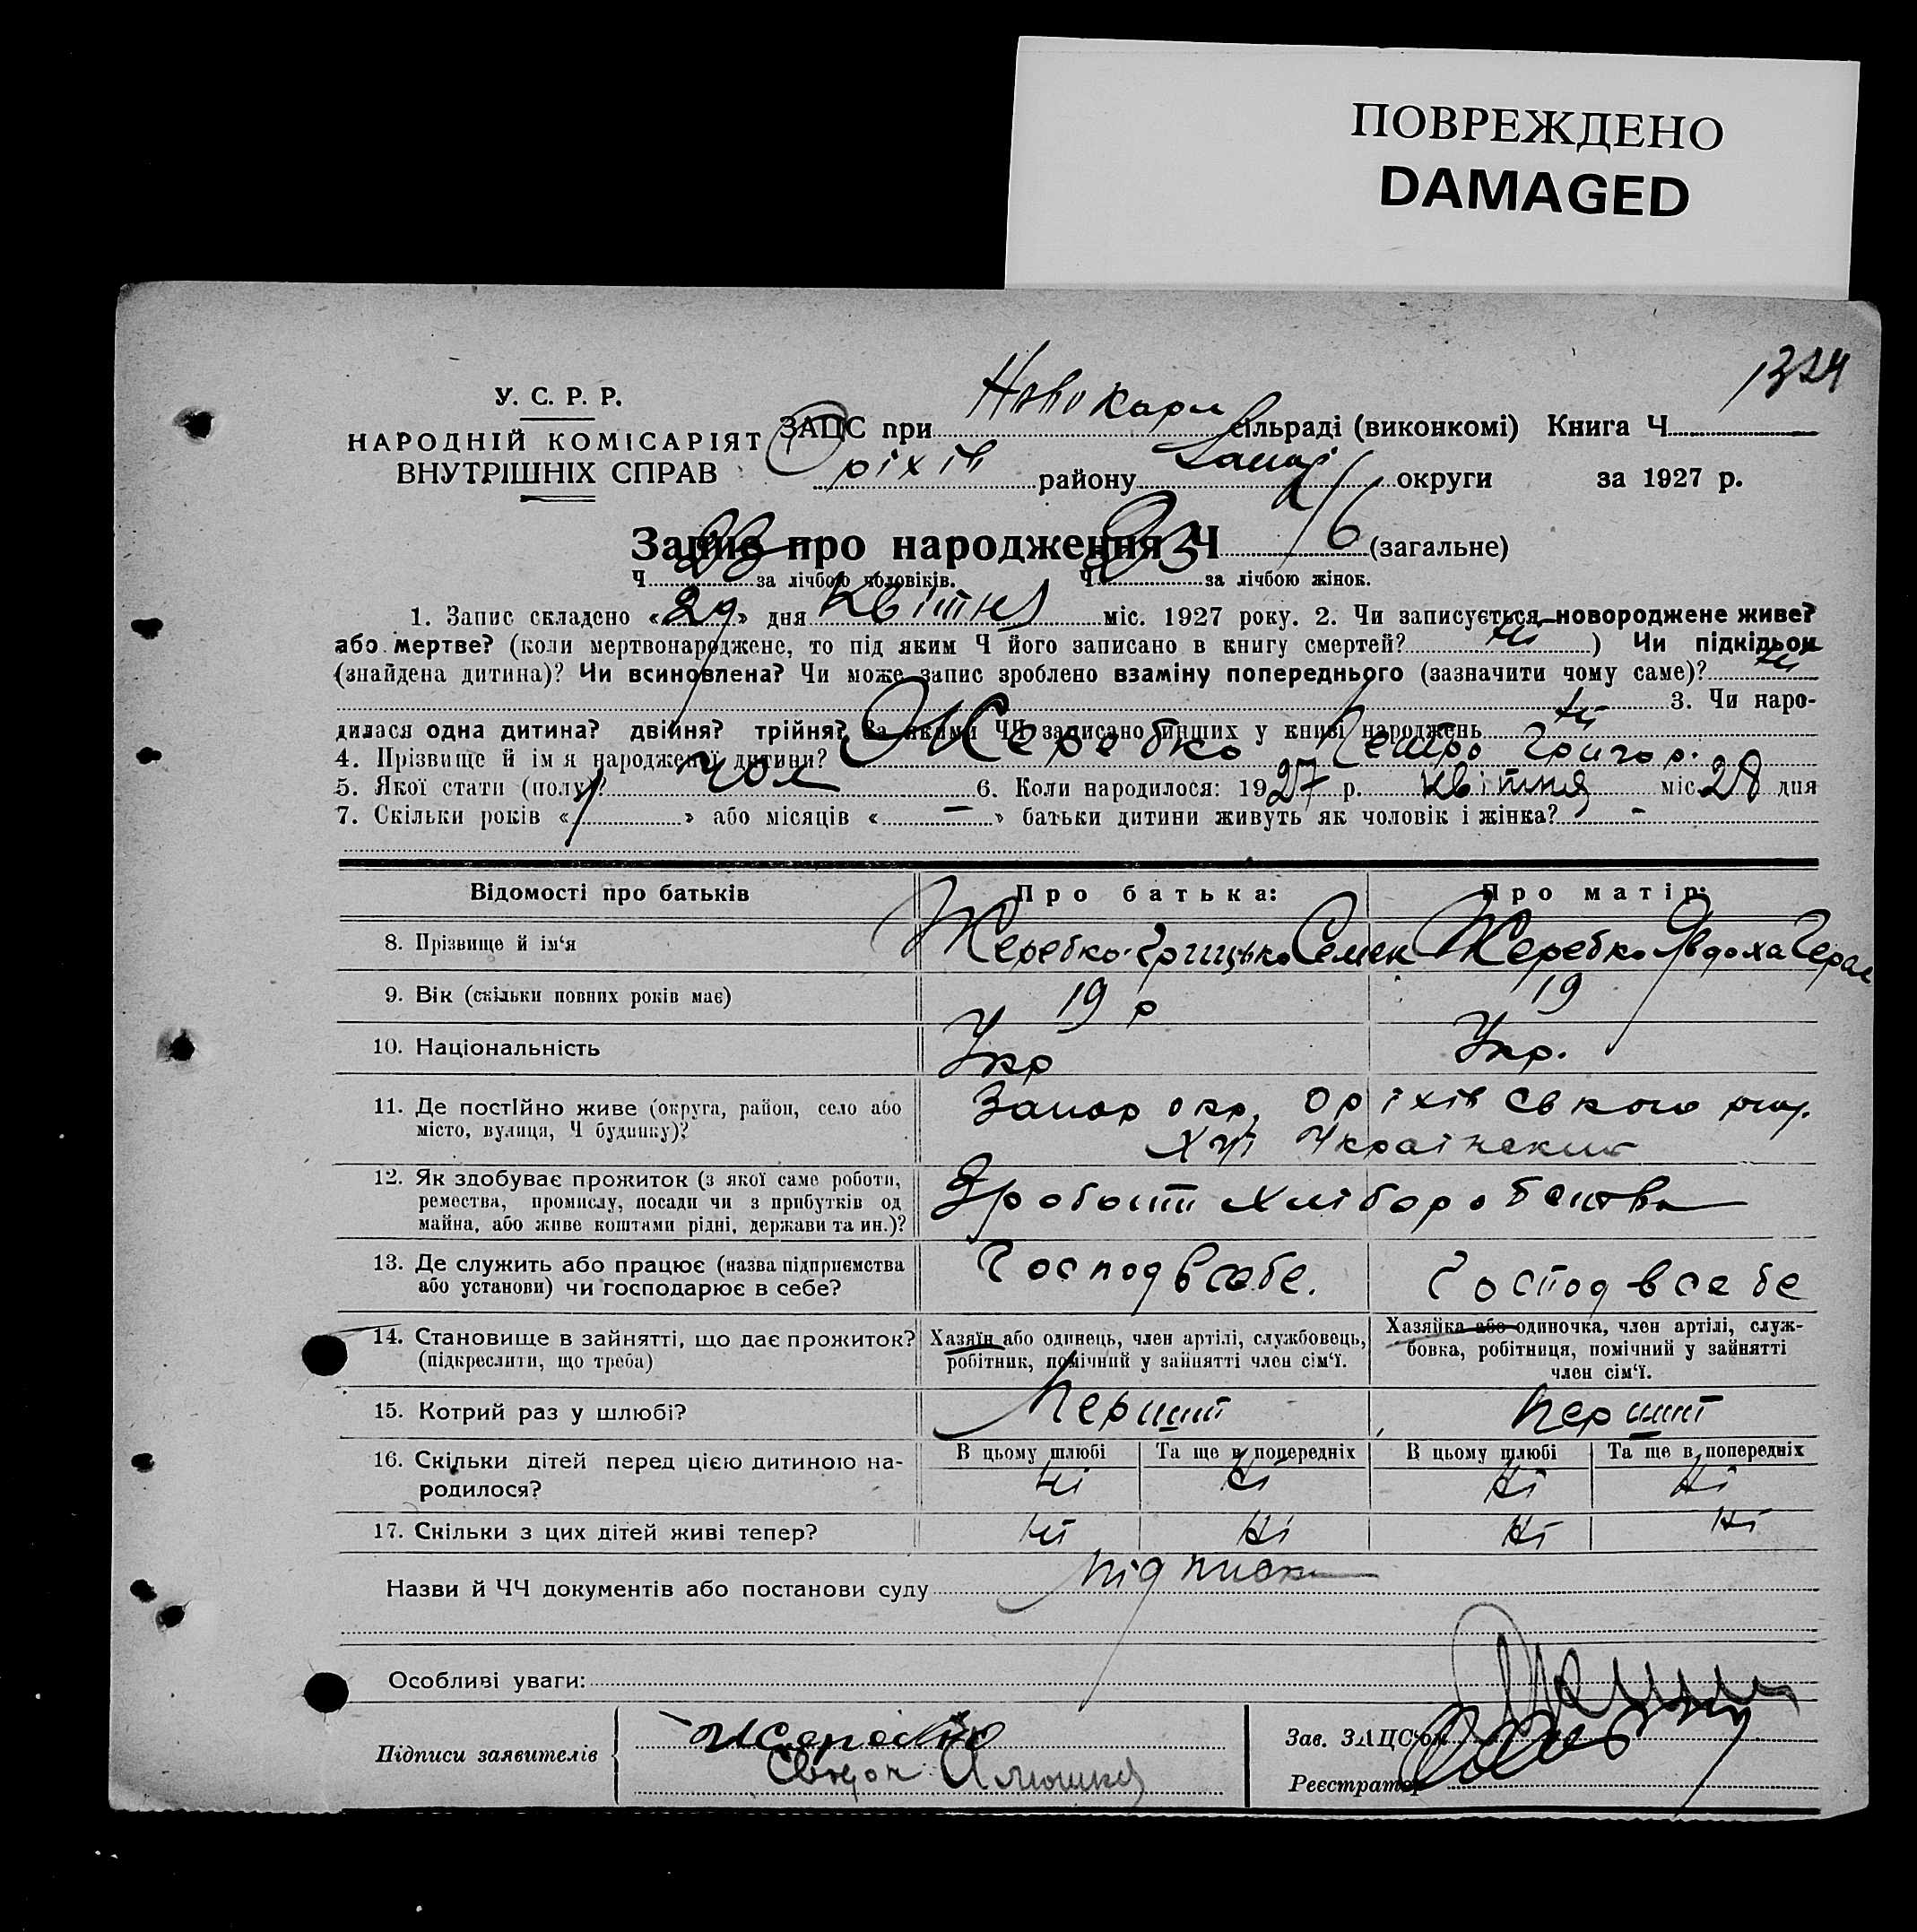 ПОВРЕЖДЕНО
DAMAGED
1324
У. С. Р. Р.
НАРОДНІЙ КОМІСАРІЯТ
ВНУТРІШНІХ СПРАВ
ЗАЦС при Новокарл сільраді (виконкомі) Книга Ч.
Оріхів району Запор округи за 1927 р.
Запис про народження Ч 46 (загальне)
Ч. 23 за лічбою чоловіків. Ч. 23 за лічбою жінок.
1. Запис складено «29» дня Квітня міс. 1927 року. 2. Чи записується новороджене живе?
або мертве? (коли мертвонароджене, то під яким Ч його записано в книгу смертей? ні ) Чи підкідьок
(знайдена дитина)? Чи всиновлена? Чи може запис зроблено взаміну попереднього (зазначити чому саме)? ні
3. Чи наро-
дилася одна дитина? двійня? трійня? За якими ЧЧ записано инших у книзі народжень ні
4. Прізвище й ім я народженої дитини? Жеребко Петро Григор.
5. Якої стати (полу)? чол 6. Коли народилося: 1927 р. квітня міс. 28 дня
7. Скільки років « » або місяців « — » батьки дитини живуть як чоловік і жінка? -
Відомості про батьків Про батька: Про матір:
8. Прізвище й ім'я Жеребко Грицько Семен Жеребко Явдоха Герас
9. Вік (скільки повних років має) 19 р 19
10. Національність Укр Укр.
11. Де постійно живе (округа, район, село або Запор окр, Оріхівського рай.
місто, вулиця, Ч будинку)? Хут Український
12. Як здобуває прожиток (з якої саме роботи,
ремества, промислу, посади чи з прибутків од З роботи хліборобства
майна, або живе коштами рідні, держави та ин.)?
13. Де служить або працює (назва підприємства Господ в себе. Господ в себе
або установи) чи господарює в себе?
14. Становище в зайнятті, що дає прожиток? Хазяїн або одинець, член артілі, службовець, Хазяйка або одиночка, член артілі, служ-
(підкреслити, що треба) робітник, помічний у зайнятті член сім'ї. бовка, робітниця, помічний у зайнятті
член сім'ї.
15. Котрий раз у шлюбі? Перший Перший
В цьому шлюбі Та ще в попередніх В цьому шлюбі Та ще в попередніх
16. Скільки дітей перед цією дитиною на-
родилося? ні ні ні ні
17. Скільки з цих дітей живі тепер? ні ні ні ні
Назви й ЧЧ документів або постанови суду підписка
Особливі уваги:
Підписи заявителів Жеребко
Зав. ЗАЦС'ом
Реєстратор